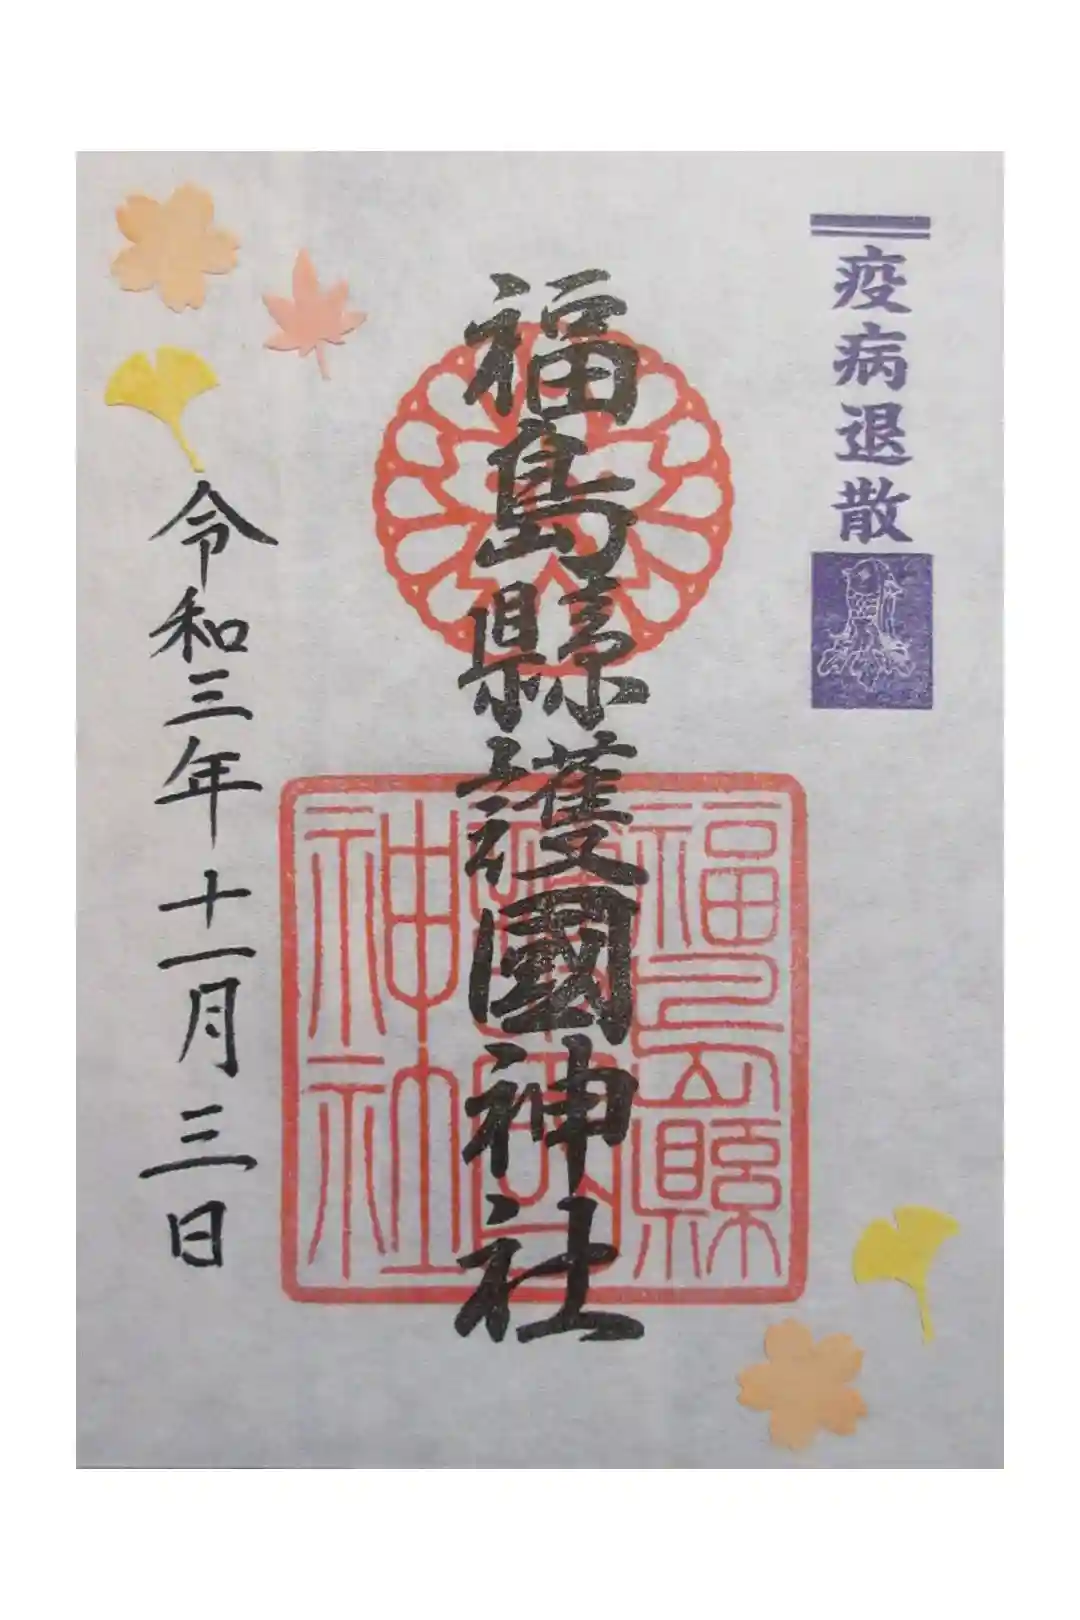 疫病退散
福島縣護國神社
福島縣
護國
神社
令和三年十一月三日